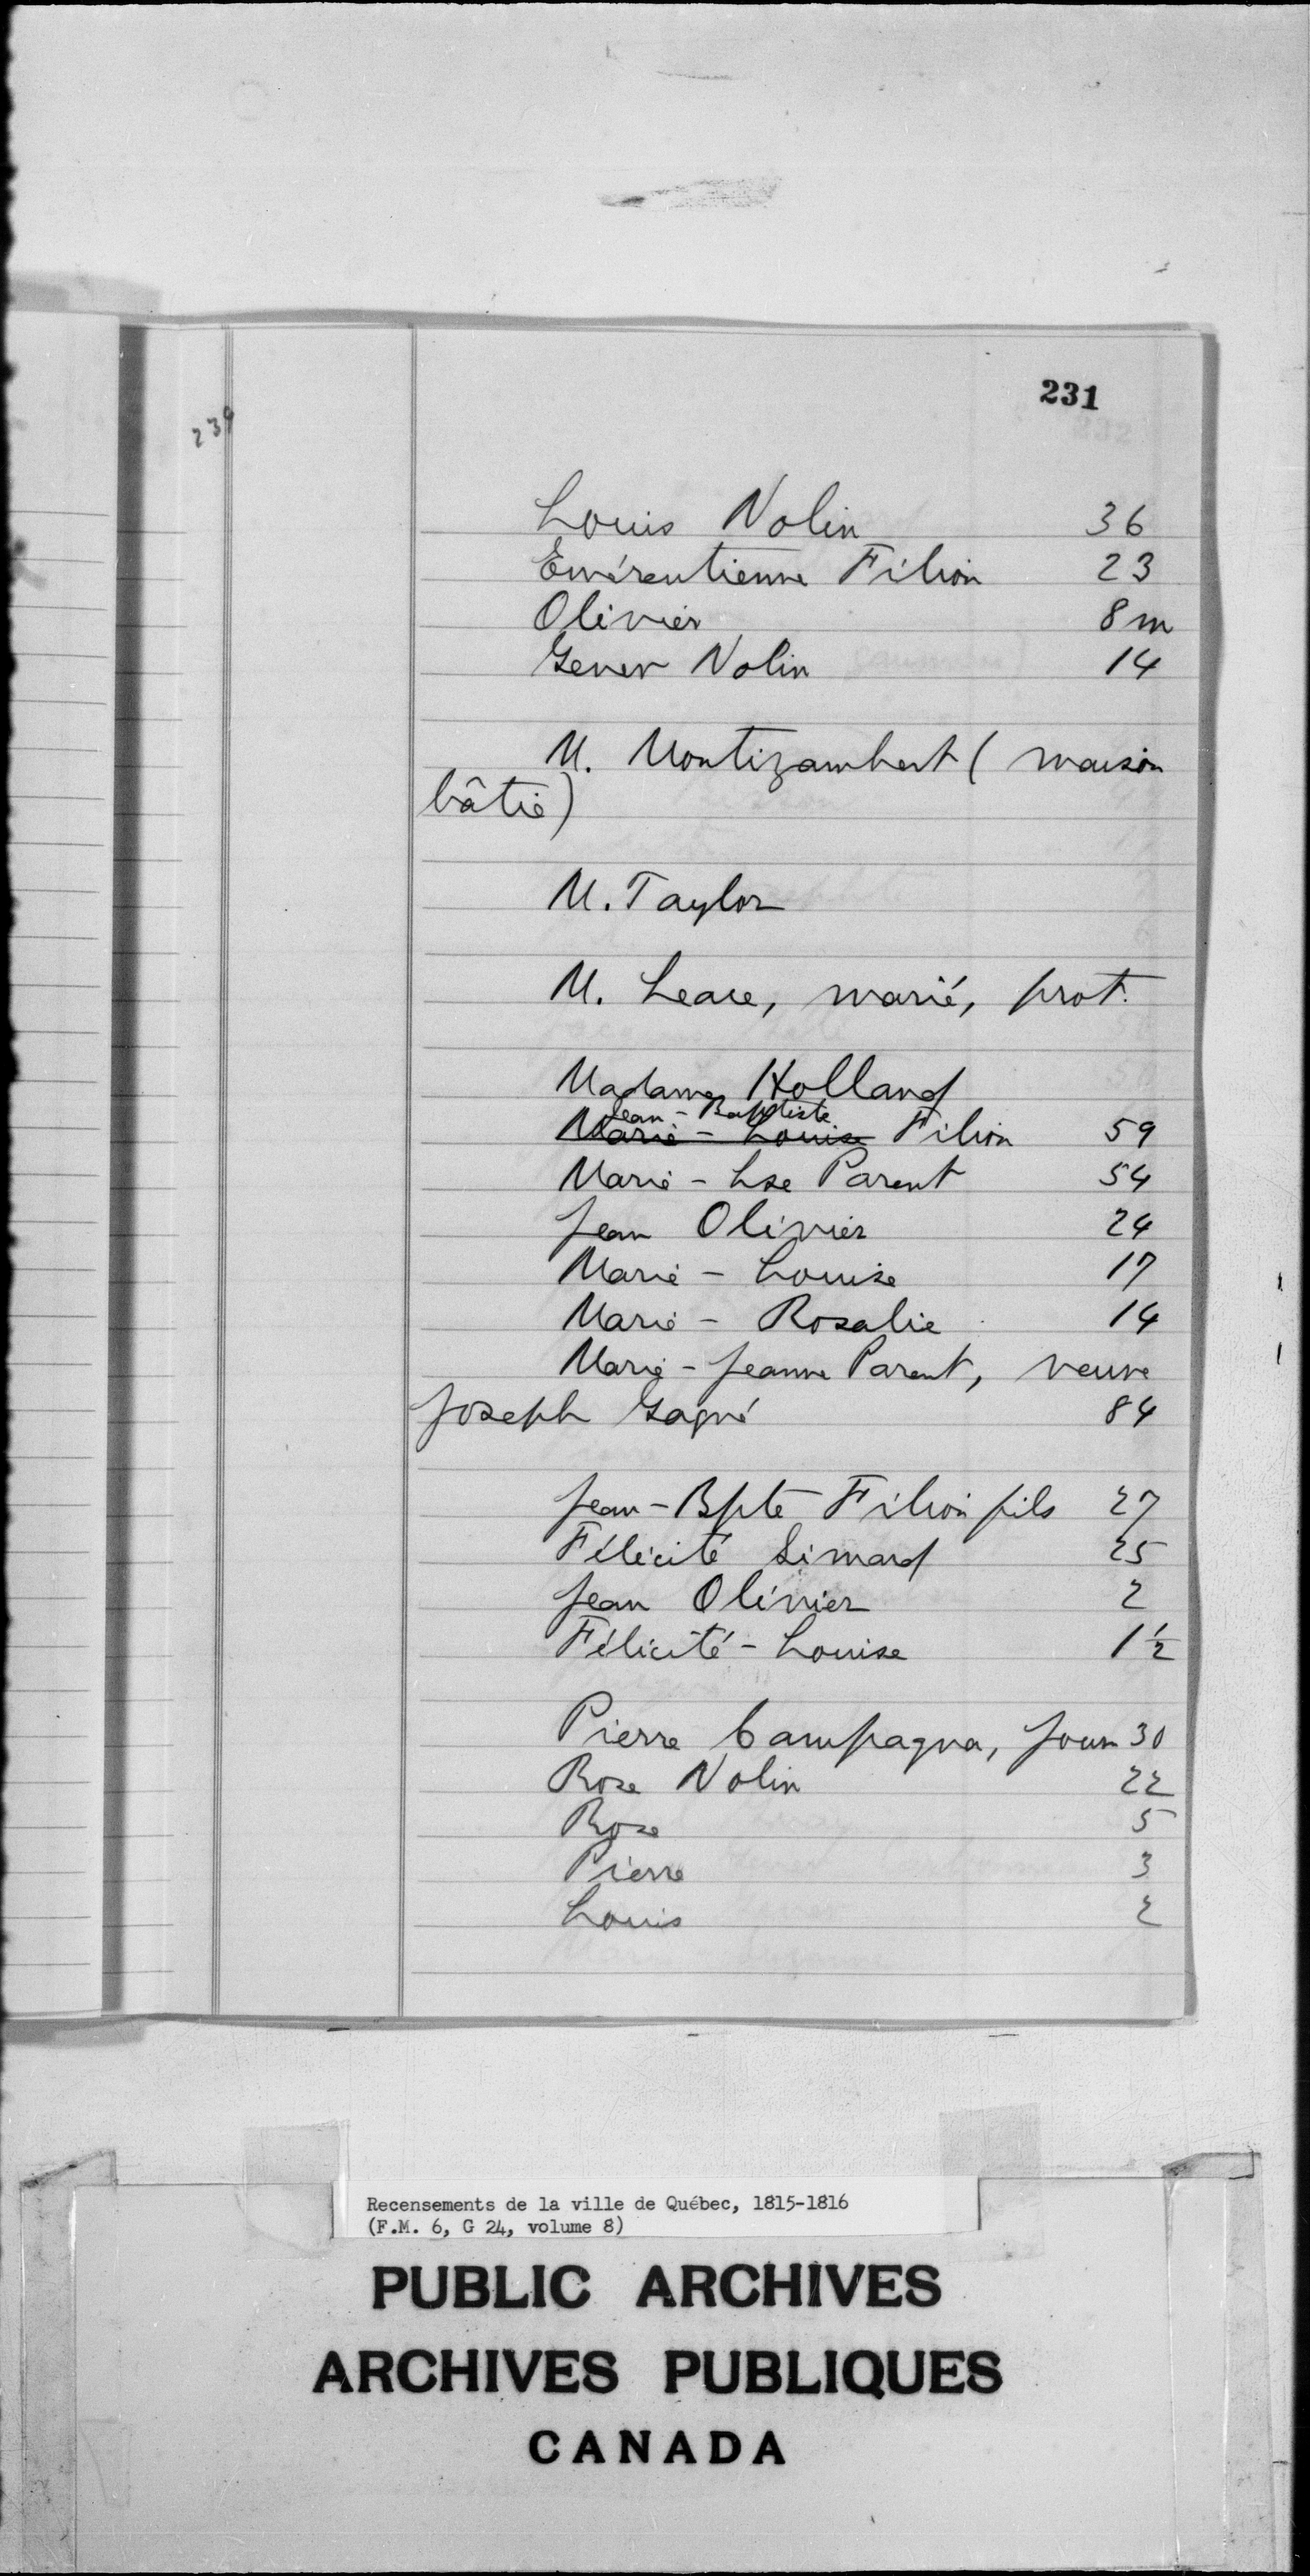 231
239
Louis Nolin 36
Emérentienne Filion 23
Olivier 8 m
Genev Nolin 14
M. Montizambert ( maison
bâtie)
M. Taylor
M. Leace, marié, prot.
Madame Holland
Jean - Baptiste
Marie - Louise Filion 59
Marie - Lse Parent 54
Jean Olivier 24
Marie - Louise 17
Marie - Rosalie 14
Marie - Jeanne Parent, veuve
Joseph Gagné 84
Jean - Bpte Filion fils 27
Félicité Simard 25
Jean Olivier 2
Félicité - Louise 1½
Pierre Campagna, journ 30
Rose Nolin 22
Rose 5
Pierre 3
Louis 2
Recensements de la ville de Québec, 1815-1816
(F.M. 6, G 24, volume 8)
PUBLIC ARCHIVES
ARCHIVES PUBLIQUES
CANADA